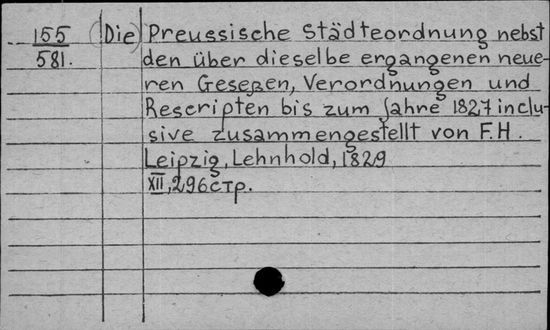 155 (Die) Preussische Städteordnung nebst
581. den über dieselbe ergangenen neue-
ren Geseßen, Verordnungen und
Rescripten bis zum Jahre 1827 inclu-
sive zusammengestellt von F.H.
Leipzig, Lehnhold, 1829
XII, 296 стр.